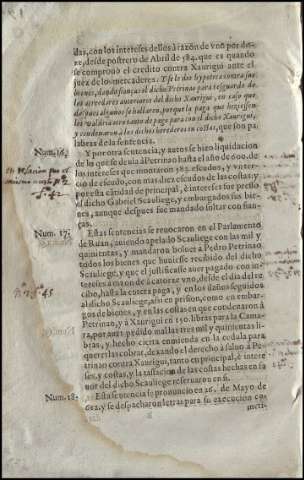 das, con los intereses dellos à razón de vno por do-
ze, desde postrero de Abril de 584. que es quando
se comprouò el credito contra Xaurigui ante el
juez de los mercaderes. Y se le dio hypoteca contra sus
bienes, dando fiança el dicho Petrino para resguardo de
los acreedores anteriores del dicho Xaurigui, en caso que
despues algunos se hallaren, porque la paga que hiziessen
les valdria a tanto de pago para con el dicho Xaurigui,
y condenaron a los dichos herederos en costas, que son pa-
labras de la sentencia.
Num. 16. Y por otra sentencia, y autos se hizo liquidacion
de lo que se deuia à Petrino hasta el año de 600. de
los intereses que montaron 382. escudos, y vn ter-
cio de escudo, con mas diez escudos de las costas: y
por esta cãtidad de principal, è intereses fue preso
el dicho Gabriel Scauliege, y embargados sus bie-
nes, aunque despues fue mandado soltar con fian-
ças.
Num. 17. Estas sentencias se reuocaron en el Parlamento
de Ruan, auiendo apelado Scauliege con las mil y
quinientas, y mandaron bolver a Pedro Petrino
todos los bienes que huuiesse recibido del dicho
Scauliege, y que el justificasse auer pagado con in-
teresses à razon de catorze vno, desde el dia del re-
cibo, hasta la entera paga, y en los daños seguidos
al dicho Scauliege, assi en prision, como en embar-
gos de bienes, y en las costas en que condenaron à
Petrino, y à Xaurigui en 150. libras para la Cama-
ra, por auer pedido mal las tres mil y quinientas li-
bras, y hecho cierta enmienda en la cedula para
querer las cobrar, dexando el derecho à saluo à Pe-
trino contra Xaurigui, tanto en principal, è inte-
reses, y costas, y la tassacion de las costas hechas en fa
uor del dicho Scauliege reseruaron en si.
Num. 18. Esta sentencia se pronunciò en 26. de Mayo de
602. y se despacharon letras para su execucion co
meti-